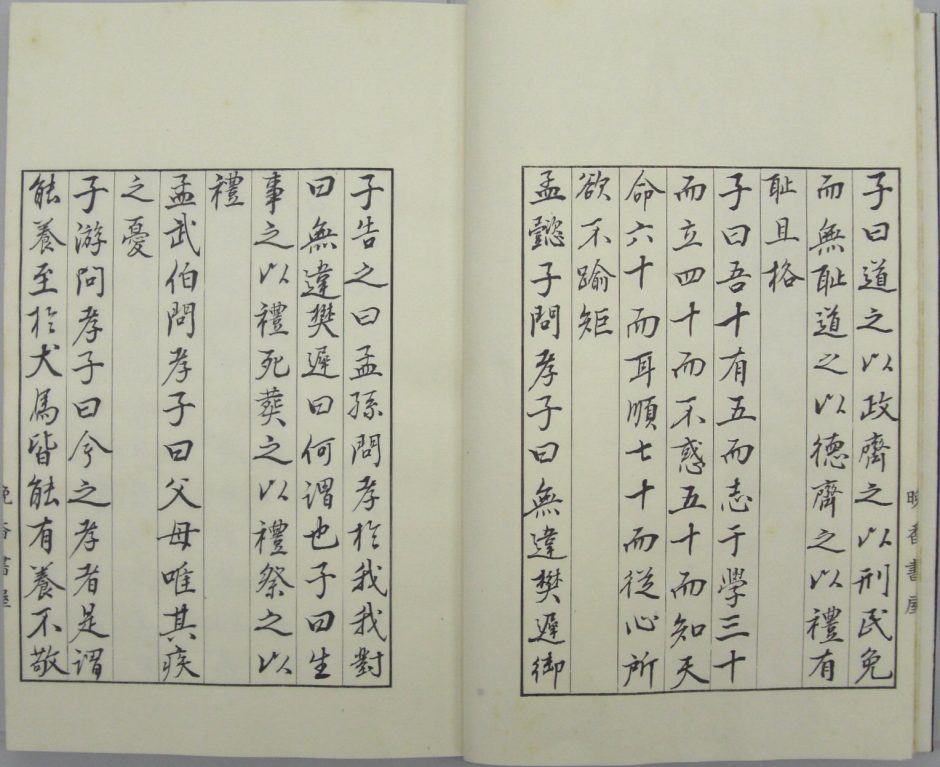 子曰道之以政齊之以刑民免
而無恥道之以德齊之以禮有
恥且格
子曰吾十有五而志于學三十
而立四十而不惑五十而知天
命六十而耳順七十而從心所
欲不踰矩
孟懿子問孝子曰無違樊遲御
晚香書屋
子告之曰孟孫問孝於我我對
曰無違樊遲曰何謂也子曰生
事之以禮死葬之以禮祭之以
禮
孟武伯問孝子曰父母唯其疾
之憂
子游問孝子曰今之孝者是謂
能養至於犬馬皆能有養不敬
晚香書屋